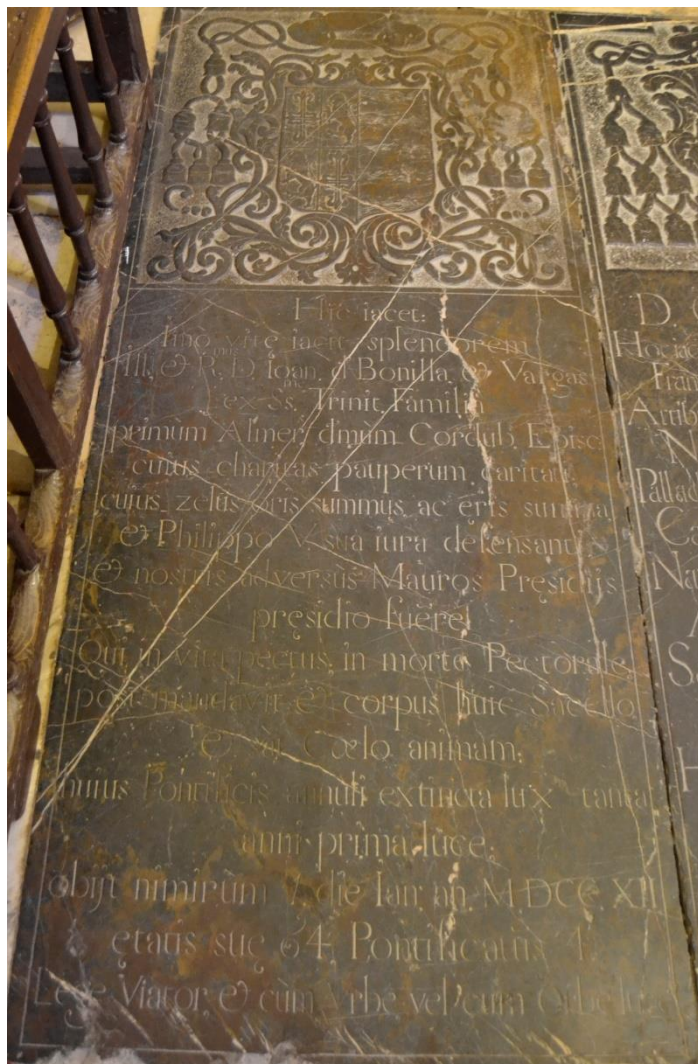 Hic iacet:
Imo vitę iacto splendorem
Ill. & R. D. Ioan. d Bonilla, & Vargas
ex Ss. Trinit. Familia
primum Almer, dmum Cordub. Episc.
cuius charitas pauperum caritas,
cuius zelus oris summus, ac eris summa,
& Philippo V. sua iura defensanti,
& nostris adversus Mauros Pręsidijs
pręsidio fuere,
Qui in vita pectus, in morte Pectorale,
post mandavit & corpus huic Sacello,
& Cœlo animam,
huius Pontificis annuli extincta lux tanta
anni prima luce,
obijt nimirùm die Ian: an. M.DCC.XII
ętatis suę 64, Pontificatus
Lege Viator, & cùm Vrbe vel cum Orbe luge
D.